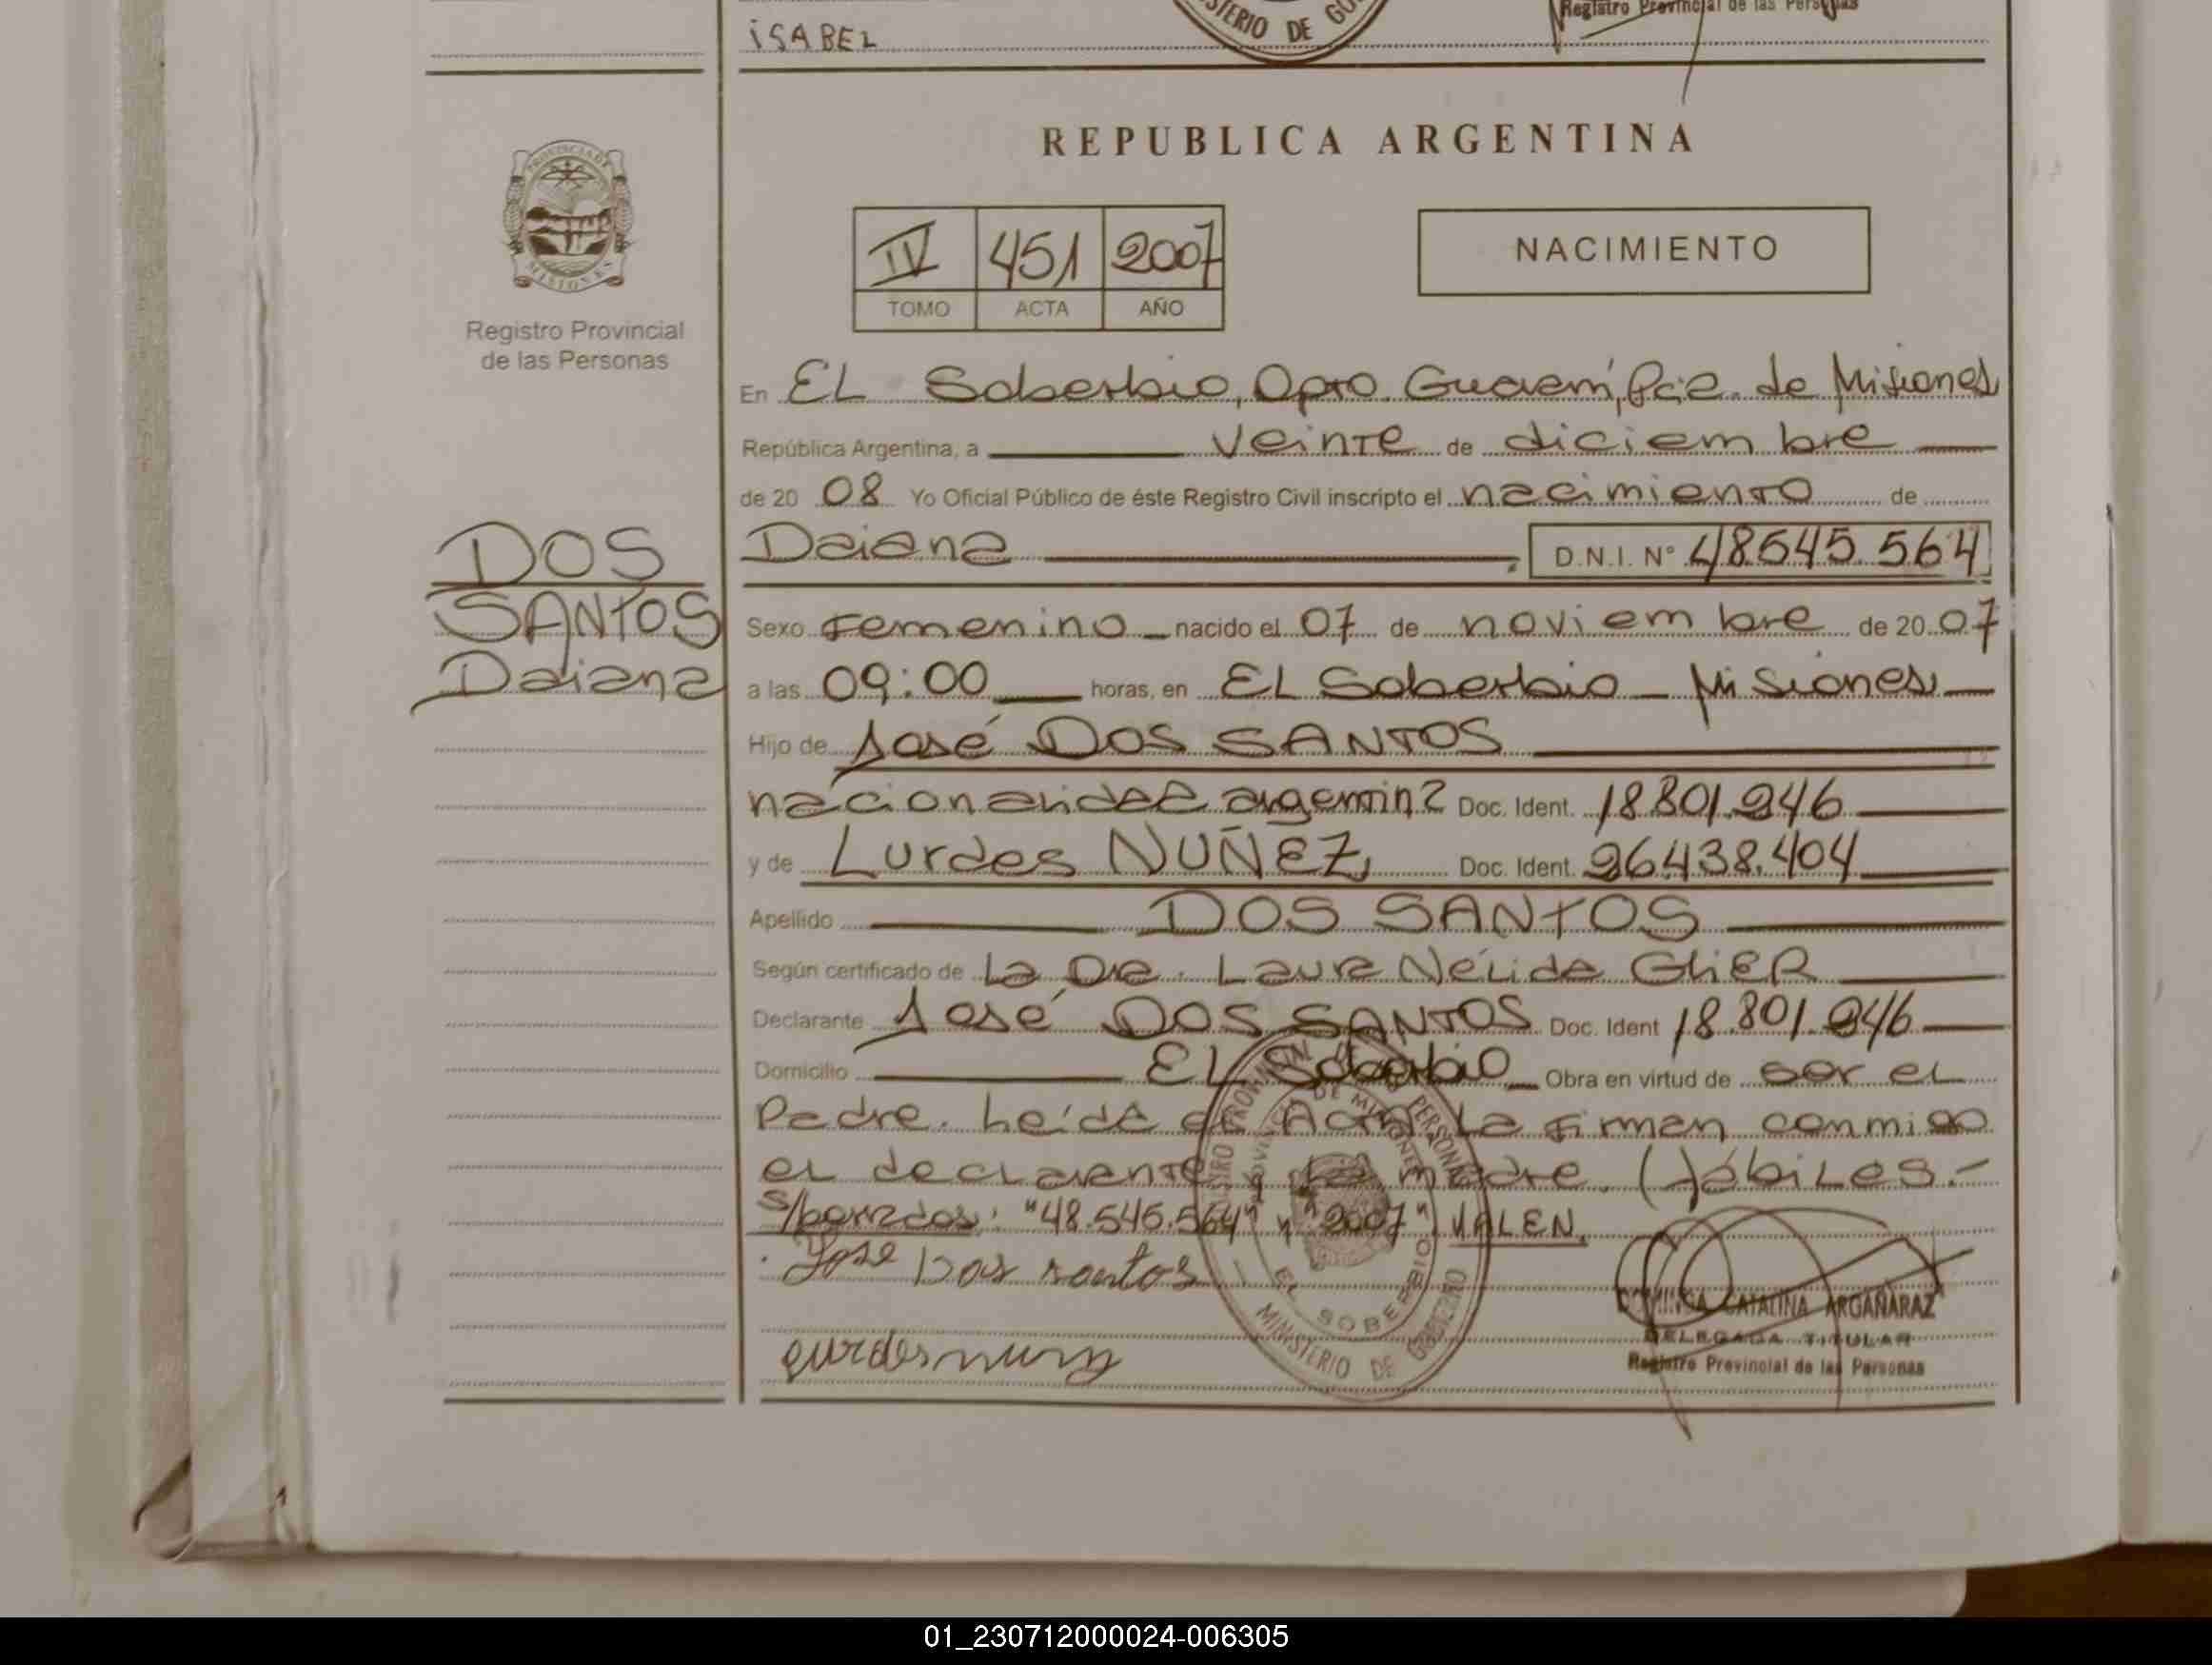 ISABEL
MINISTERIO DE GO
Registro Provincial de las Personas
PROVINCIA DE
MISIONES
Registro Provincial
de las Personas
REPUBLICA ARGENTINA
IV 451 2007
TOMO ACTA AÑO
NACIMIENTO
En EL Soberbio, Dpto. Guaraní, Pcia. de Misiones
República Argentina, a veinte de diciembre
de 20 08 Yo Oficial Público de éste Registro Civil inscripto el nacimiento de
Daiana D.N.I. Nº 48.545.564
DOS
SANTOS
Daiana
Sexo Femenino nacido el 07 de noviembre de 20 07
a las 09:00 horas, en EL Soberbio - Misiones
Hijo de José DOS SANTOS
nacionalidad argentina Doc. Ident. 18.801.946
y de Lurdes NUÑEZ, Doc. Ident. 96.438.404
Apellido DOS SANTOS
Según certificado de La Dra. Laura Nélida GLIER
Declarante José DOS SANTOS Doc. Ident 18.801.946
Domicilio EL Soberbio Obra en virtud de ser el
Padre. Leída el Acta, La firman conmigo
el declarante y la madre. Hábiles.-
S/borrados: "48.545.564" y "2007" VALEN.
Jose Dos santos
REGISTRO PROVINCIAL DE LAS PERSONAS
PROVINCIA DE MISIONES
EL SOBERBIO
MINISTERIO DE GOBIERNO
CATALINA ARGAÑARAZ
DELEGADA TITULAR
Registro Provincial de las Personas
01_230712000024-006305